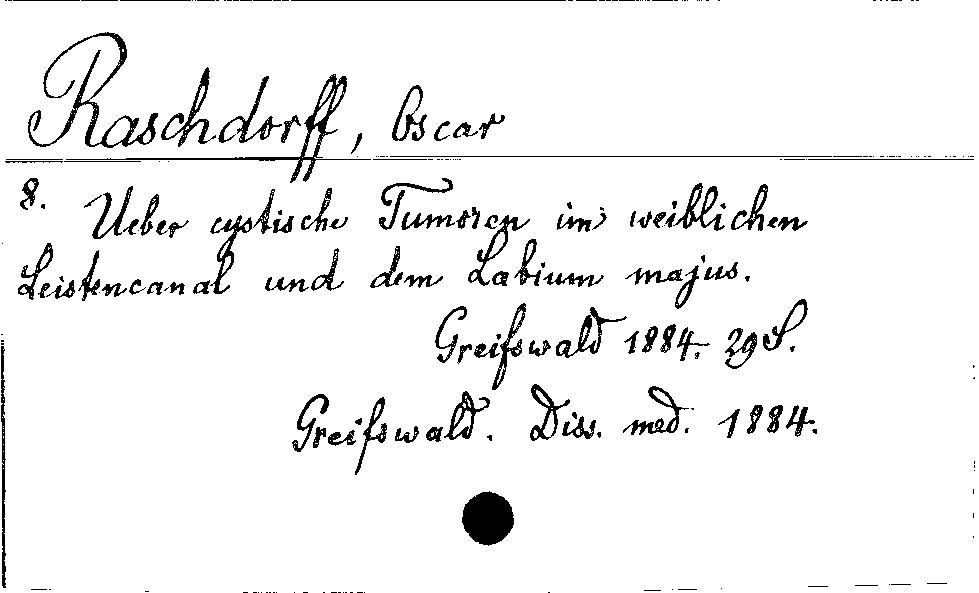 Raschdorff, Oscar
8. Ueber cystische Tumoren im weiblichen
Leistencanal und dem Labium majus.
Greifswald 1884. 29 S.
Greifswald. Diss. med. 1884.